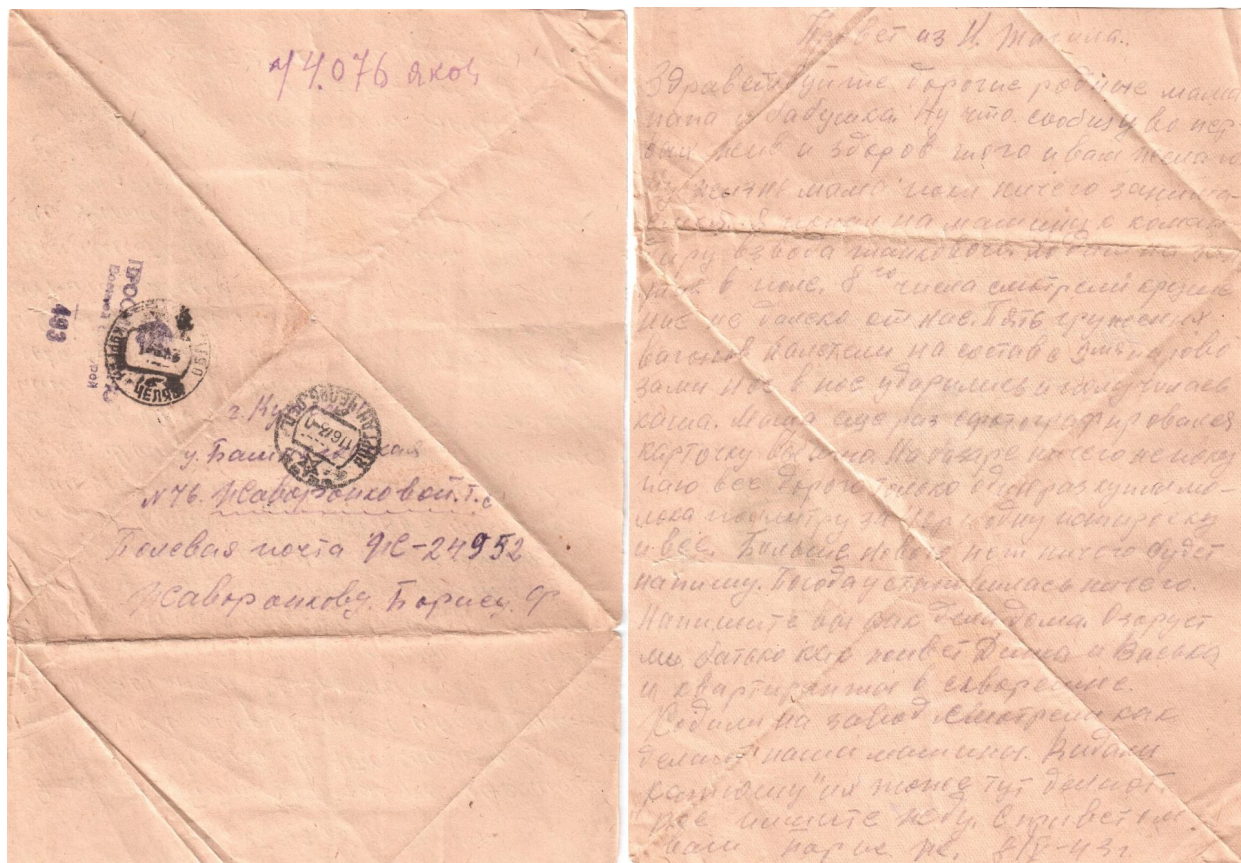 74.076
ПРОСМ
493
ЧЕЛЯБ
КУРГАН ЧЕЛЯБ. ОБЛ.
г. Ку
у. Баш кая
№ 76. Жаворонковой. Т.
Полевая почта № - 24952
Жаворонкову. Борису. Ф.
Привет из Н. Тагила.
Здравствуйте дорогие родные мама
папа и бабушка. Ну что сообщу во пер-
вых жив и здоров того и вам желаю
жизнь мама пока ничего занима-
на машину к коман-
диру взвода
в поле. 8го числа смотрели круше
ние не далеко от нас. Пять груженых
вагонов налетели на состав с парово
зами нос в нос ударились и получилась
каша. Мама еще раз сфотографировался
карточку вышлю. На базаре ничего не поку
паю все дорого только один раз купил мо-
лока
и все. Больше нового нет ничего будет
напишу. Погода установилась ничего.
Напишите вы как дела дома. Озорует
ли батько как живет Дима и Васька
и квартиранты в скворешне.
Ходили на завод смотрели как
делают наши машины. Видали
"катюшу" их тоже тут делают.
пишите жду. С приветом
ваш Борис